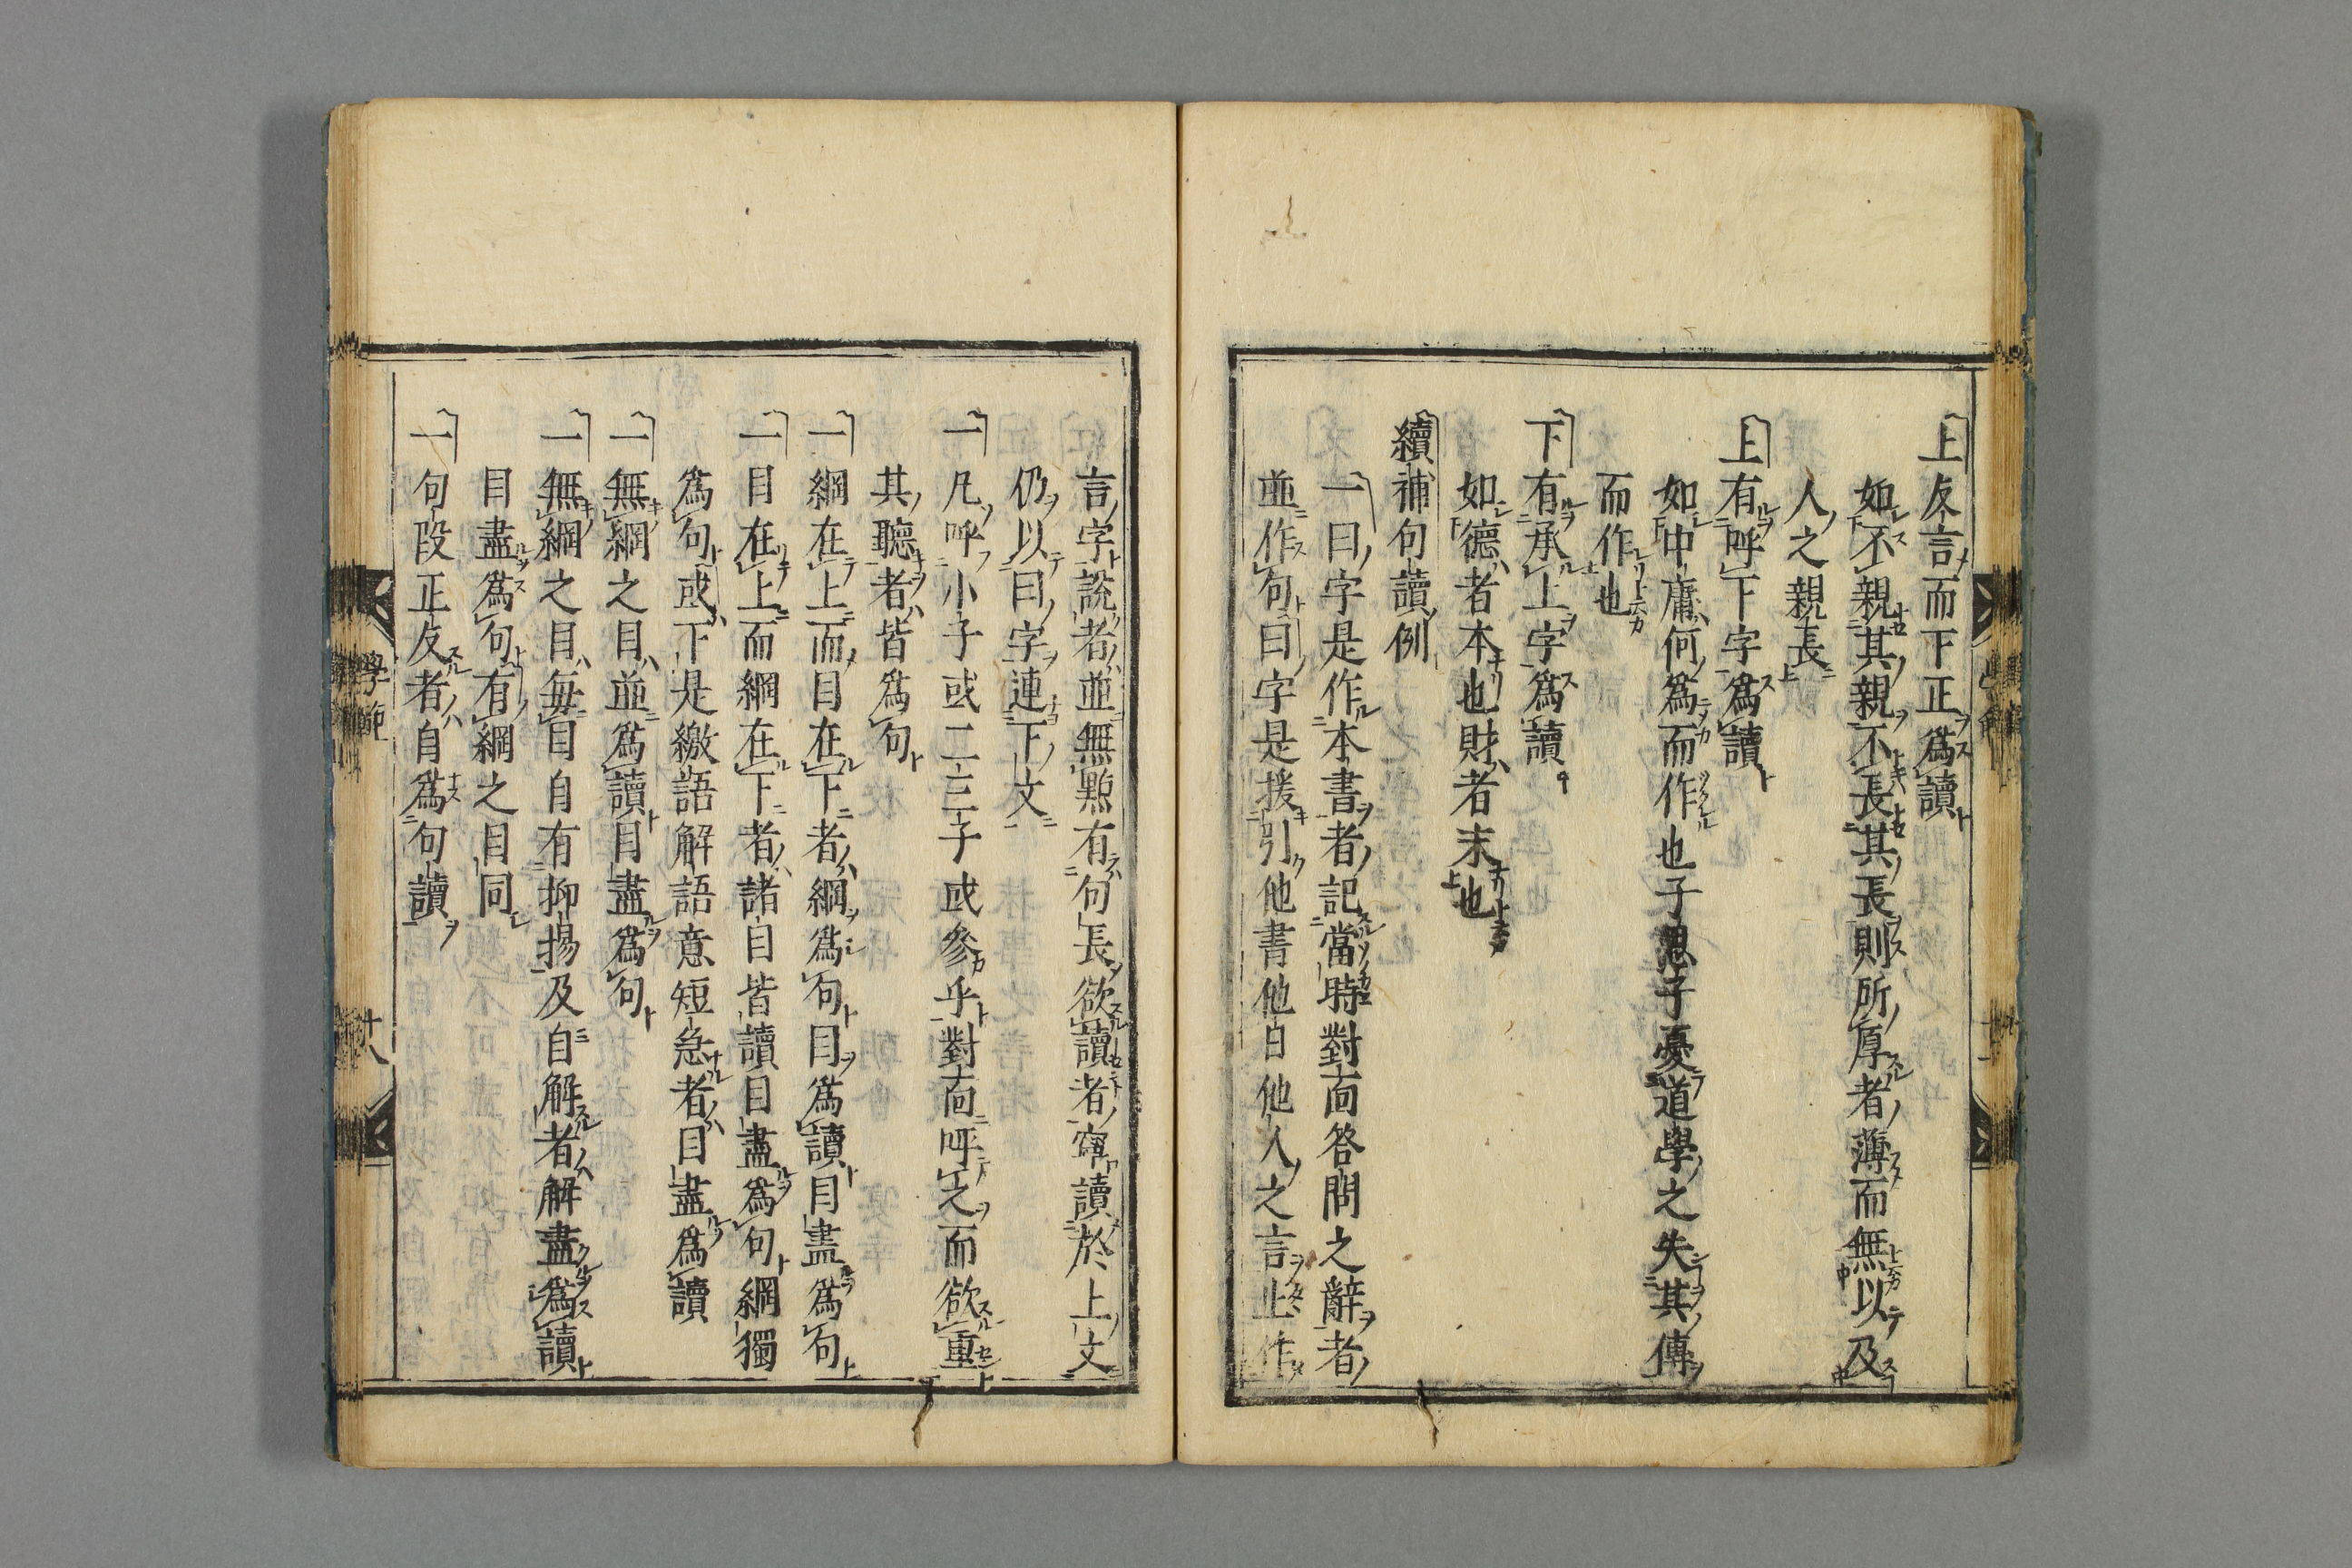 上反言而下正爲讀
如不親其親不長其長則所厚者薄而無以及
人之親長
上有呼下字爲讀
如中庸何爲而作也子思子憂道學之失其傳
而作也
下有承上字爲讀
如德者本也財者末也
續補句讀例
一曰字是作本書者記當時對面答問之辭者
並作句曰字是援引他書他日他人之言止作
言字說者並無點有句長欲讀者寧讀於上文
仍以曰字連下文
一凡呼小子或二三子或參乎對面呼之而欲重
其聽者皆爲句
一綱在上而目在下者綱爲句目爲讀目盡爲句
一目在上而綱在下者諸目皆讀目盡爲句綱獨
爲句或下是繳語解語意短急者目盡爲讀
一無綱之目並爲讀目盡爲句
一無綱之目每目自有抑揚及自解者解盡爲讀
目盡爲句有綱之目同
一句段正反者自爲句讀
學範
十八